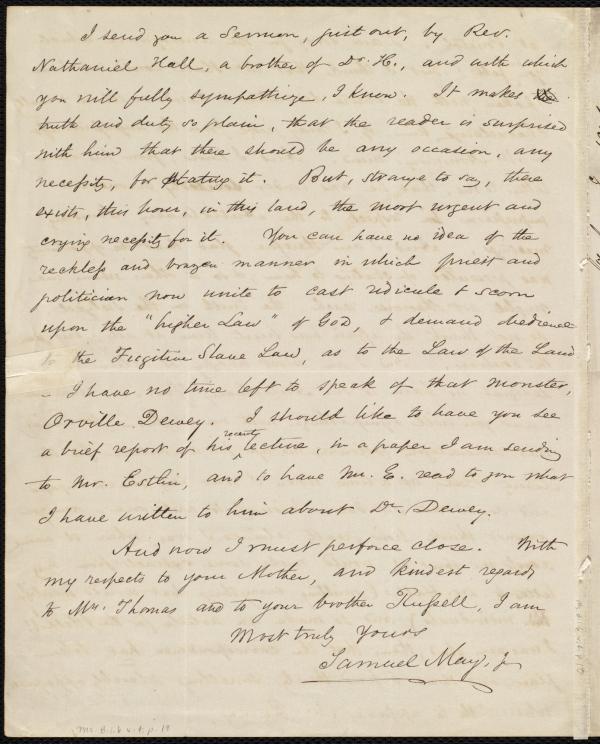 I send you a Sermon, just out, by Rev.
Nathaniel Hall, a brother of Dr. H., and with which
you will fully sympathize, I know. It makes
truth and duty so plain, that the reader is surprised
with him that there should be any occasion, any
necessity, for stating it. But, strange to say, there
exists, this hour, in this land, the most urgent and
crying necessity for it. You can have no idea of the
reckless and brazen manner in which priest and
politician now unite to cast ridicule & scorn
upon the "higher Law" of God, & demand obedience
to the Fugitive Slave Law, as to the Law of the Land
- I have no time left to speak of that monster,
Orville Dewey. I should like to have you see
a brief report of his recent lecture, in a paper I am sending
to Mr. Estlin, and to have Mr. E. read to you what
I have written to him about Dr. Dewey.
And now I must perforce close. With
my respects to your Mother, and kindest regards
to Mr. Thomas and to your brother Russell, I am
Most truly Yours
Samuel May, Jr